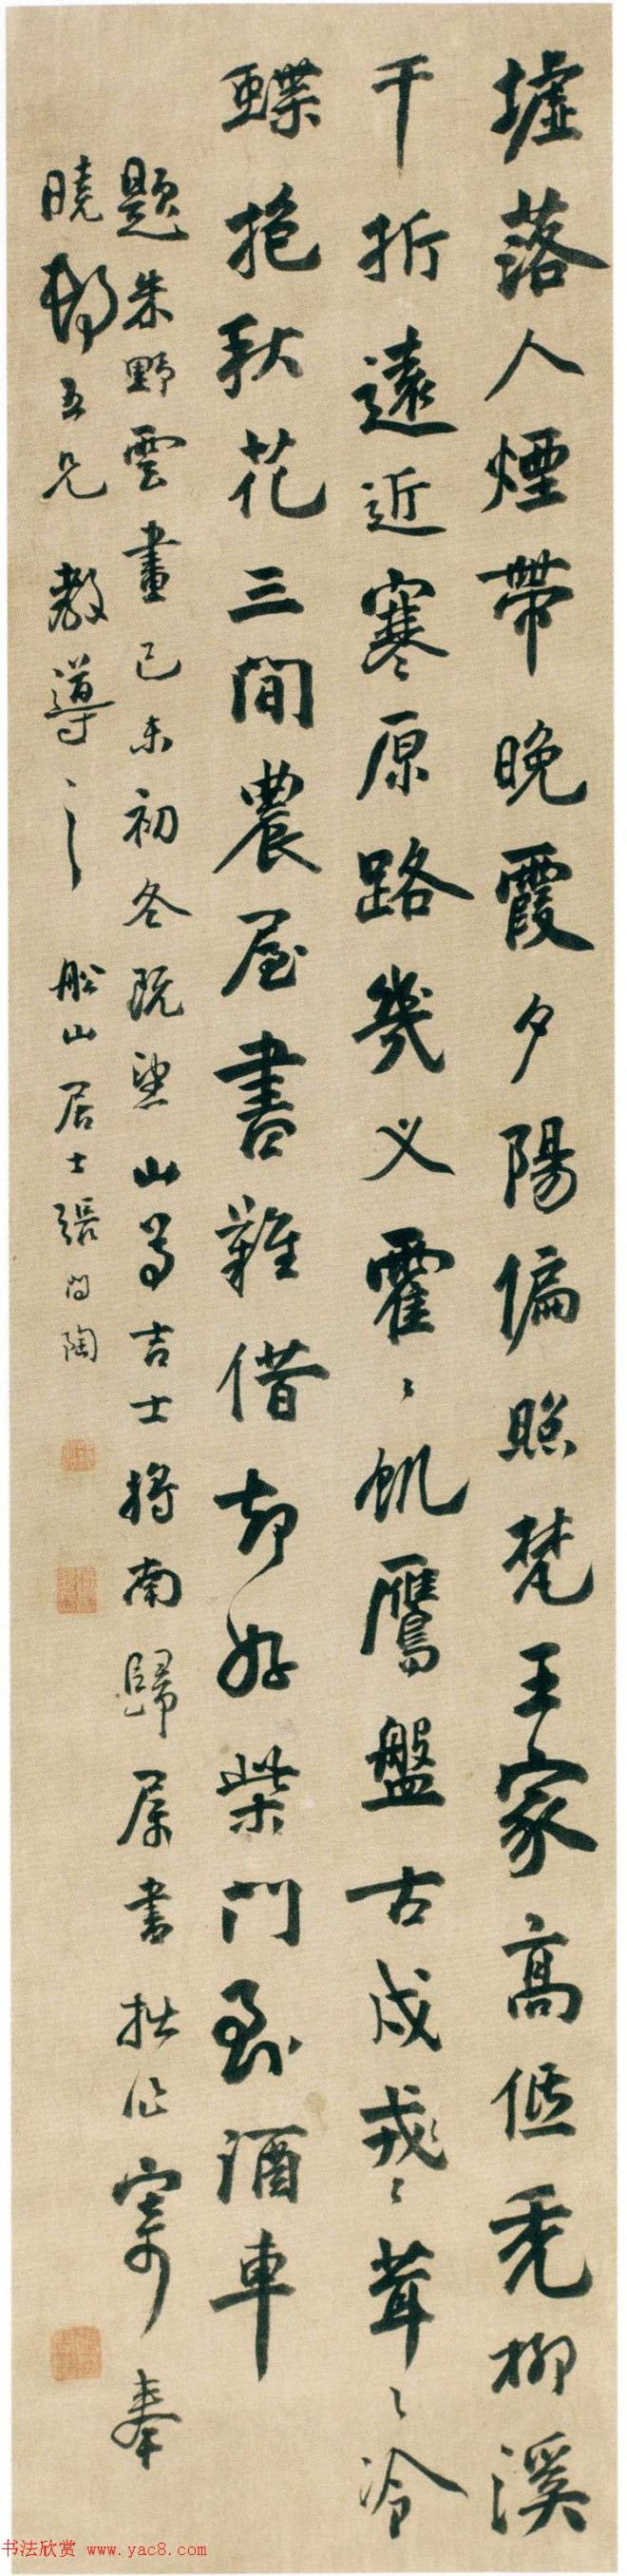 墟落人煙帶晚霞夕陽偏照梵王家高低禿柳溪
千折遠近寒原路幾义霍〻飢鷹盤古戍戎〻茸〻冷
蝶抱秋花三間農屋書難借却好柴門到酒車
題朱野雲畫己未初冬既望山尊吉士将南歸屬書拙作寄奉
曉五兄教導之船山居士張問陶
书法欣赏 www.yac8.com